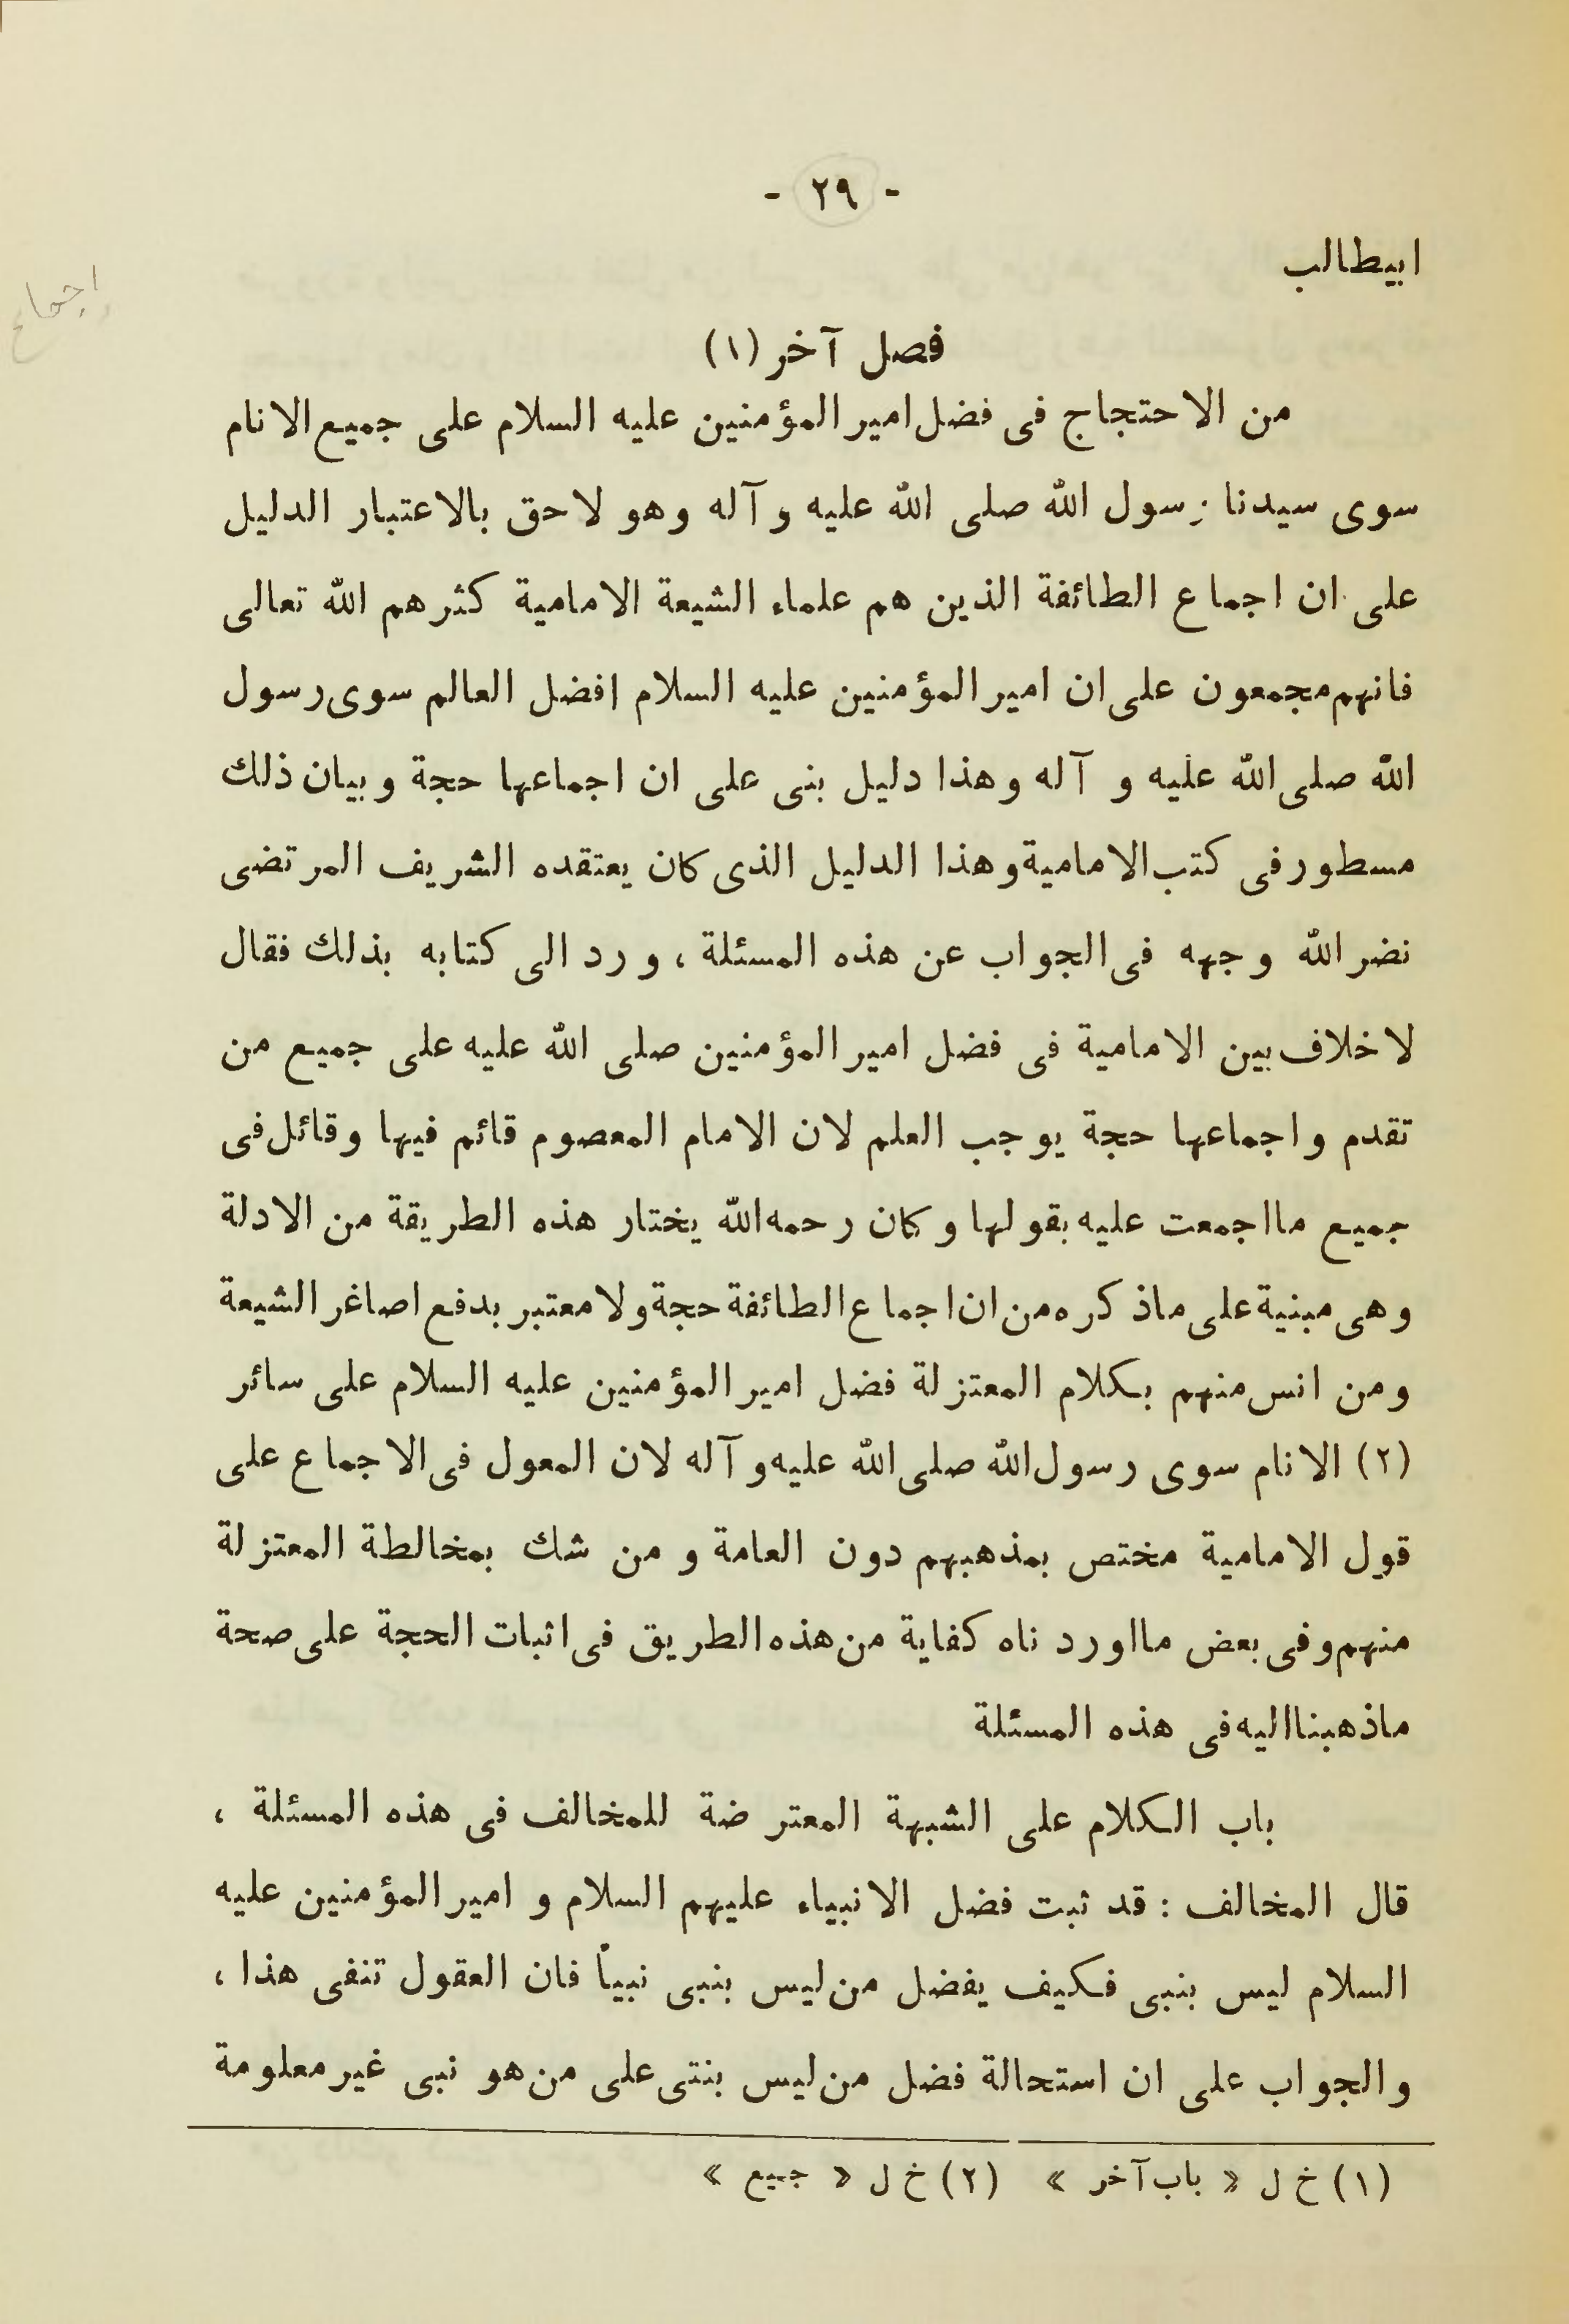 - ٢٩ -
ابيطالب
اجماع
فصل آخر (١)
من الاحتجاج فى فضل امير المؤمنين عليه السلام على جميع الانام
سوى سيدنا رسول الله صلى الله عليه و آله وهو لاحق بالاعتبار الدليل
على ان اجماع الطائفة الذين هم علماء الشيعة الامامية كثرهم الله تعالى
فانهم مجمعون على ان امير المؤمنين عليه السلام افضل العالم سوى رسول
الله صلى الله عليه و آله وهذا دليل بنى على ان اجماعها حجة وبيان ذلك
مسطور فى كتب الامامية وهذا الدليل الذى كان يعتقده الشريف المرتضى
نضر الله وجهه فى الجواب عن هذه المسئلة ، ورد الى كتابه بذلك فقال
لاخلاف بين الامامية فى فضل امير المؤمنين صلى الله عليه على جميع من
تقدم واجماعها حجة يوجب العلم لان الامام المعصوم قائم فيها وقائل فى
جميع ما اجمعت عليه بقولها وكان رحمه الله يختار هذه الطريقة من الادلة
وهى مبنية على ماذكره من ان اجماع الطائفة حجة ولا معتبر بدفع اصاغر الشيعة
ومن انس منهم بكلام المعتزلة فضل امير المؤمنين عليه السلام على سائر
(٢) الانام سوى رسول الله صلى الله عليه و آله لان المعول فى الاجماع على
قول الامامية مختص بمذهبهم دون العامة و من شك بمخالطة المعتزلة
منهم وفى بعض ما اوردناه كفاية من هذه الطريق فى اثبات الحجة على صحة
ماذهبنا اليه فى هذه المسئلة
باب الكلام على الشبهة المعترضة للمخالف فى هذه المسئلة ،
قال المخالف : قد ثبت فضل الانبياء عليهم السلام و امير المؤمنين عليه
السلام ليس بنبى فكيف يفضل من ليس بنبى نبياً فان العقول تنفى هذا ،
والجواب على ان استحالة فضل من ليس بنتى على من هو نبى غير معلومة
(١) خ ل « باب آخر » (٢) خ ل « جميع »